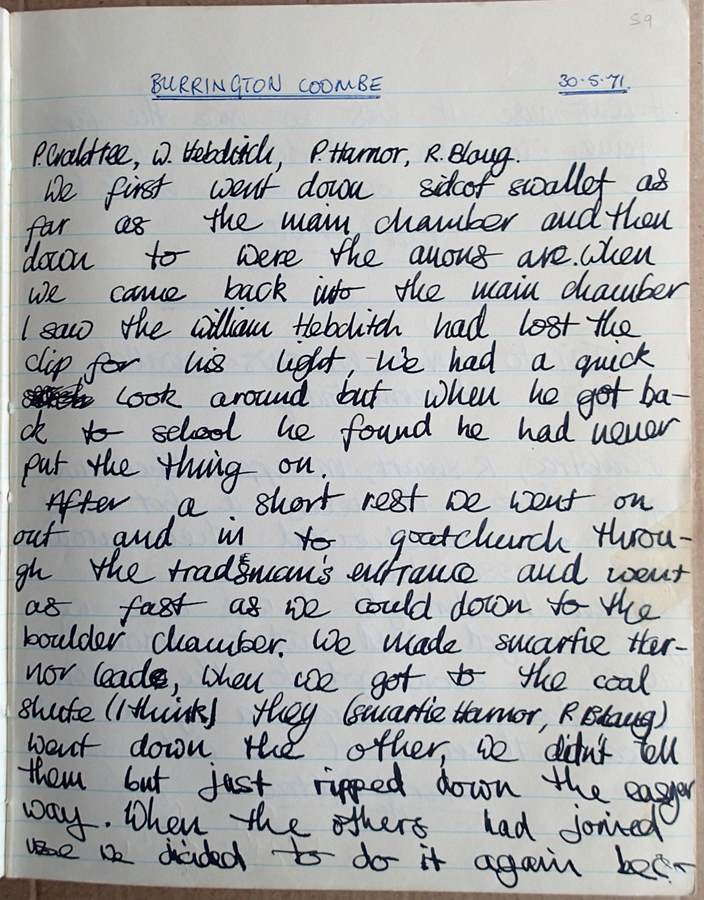 59
BURRINGTON COOMBE 30-5-71
P. Crabtree, W. Hebditch, P. Harnor, R. Blaug.
We first went down sidcot swallet as
far as the main chamber and then
down to were the are. When
we came back into the main chamber
I saw the William Hebditch had lost the
clip for his light, We had a quick
look around but when he got ba-
ck to school he found he had never
put the thing on.
After a short rest we went on
out and in to goatchurch throu-
gh the tradsman's entrance and went
as fast as we could down to the
boulder chamber. We made smartie Har-
nor leade, when we got to the coal
shute (I think) they (smartie Harnor, R Blaug)
went down the other, we didn't tell
them but just ripped down the easyer
way. When the others had joined
we dicided to do it again bec-